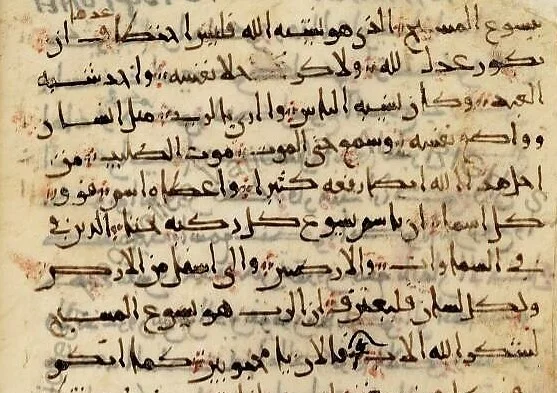 يسوع المسيح الذي هو لشبه الله فليس اختطاف ان
يكون عدل الله ولاكن خلا نفسه واخذ شبه
العبد وكان لشبه الناس مثل انسان
وواضع نفسه وسمع حتى الموت موت الصليب من
اجل هذا الله ايضا رفعه كثيرا واعطاه اسم فوق
كل اسما ان باسم يسوع كل ركبه تحنا الذين في
في السماوات والارضين والى اسفل من الارض
وكل لسان فليعترف ان الرب هو يسوع المسيح
الله الاب فالان يا محبوبين كما انكم